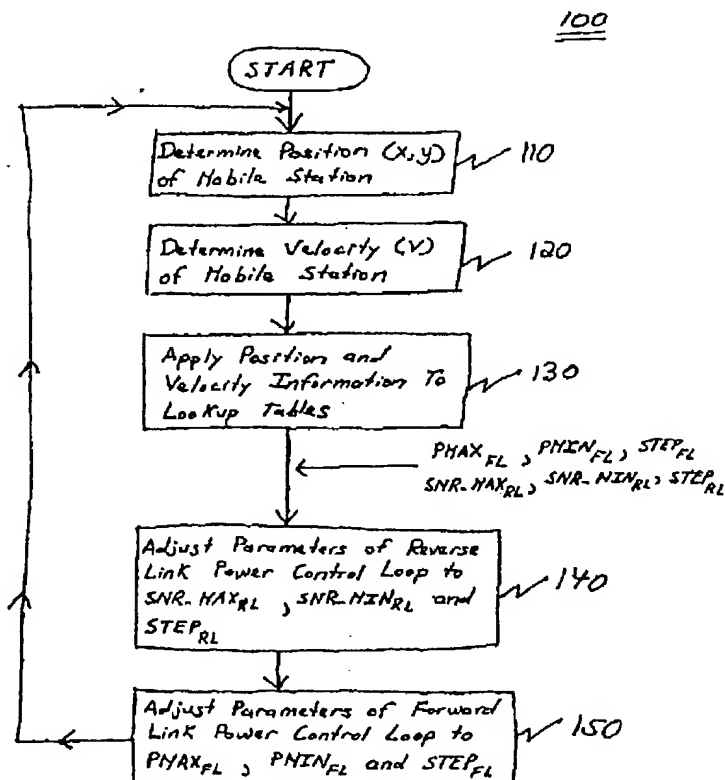 100
START
Determine Position (x,y)
of Mobile Station
110
Determine Velocity (V)
of Mobile Station
120
Apply Position and
Velocity Information To
Lookup Tables
130
PMAX_FL, PMIN_FL, STEP_FL
SNR-MAX_RL, SNR-MIN_RL, STEP_RL
Adjust Parameters of Reverse
Link Power Control Loop to
SNR-MAX_RL, SNR-MIN_RL and
STEP_RL
140
Adjust Parameters of Forward
Link Power Control Loop to
PMAX_FL, PMIN_FL and STEP_FL
150